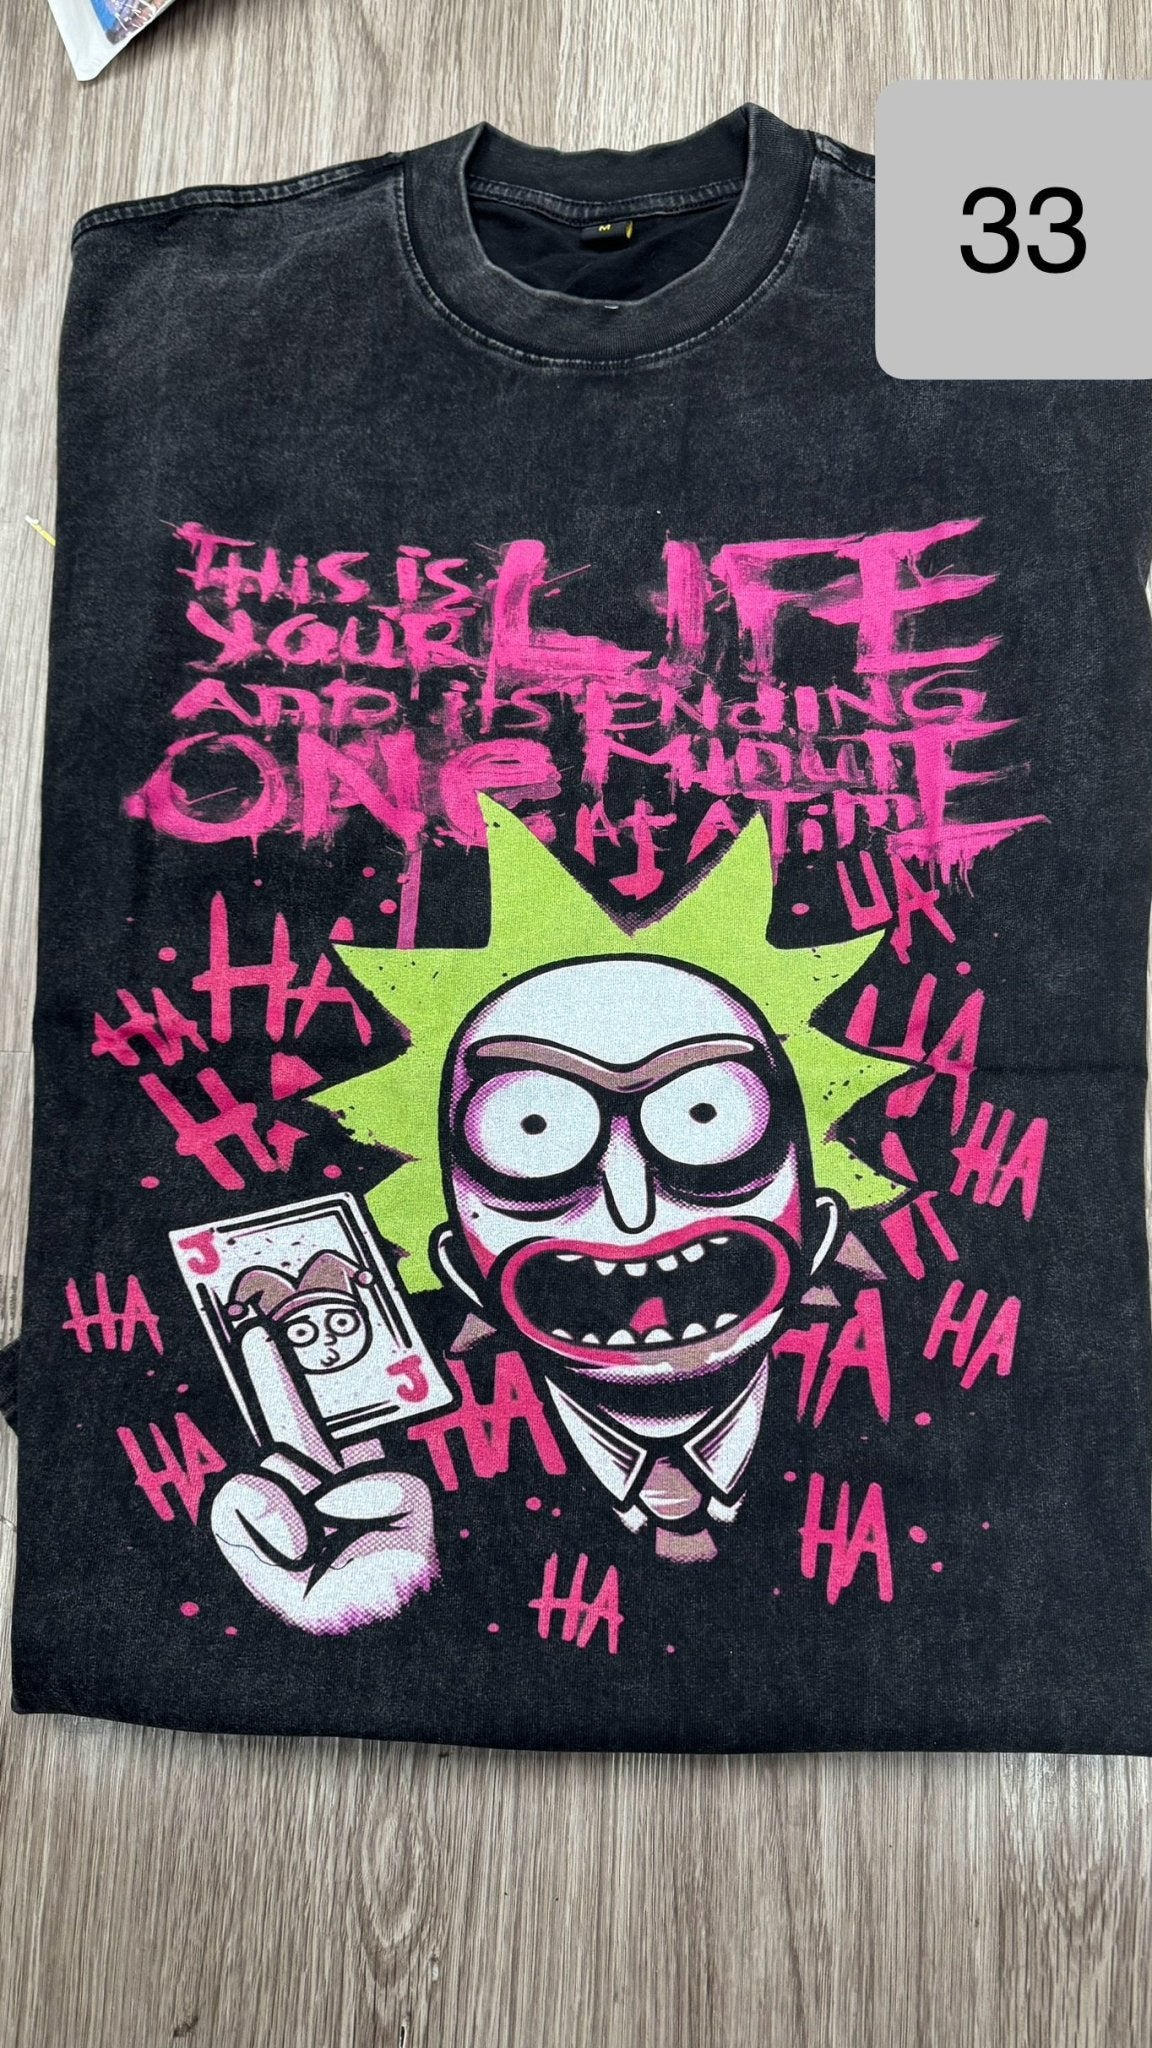 33
M
THIS IS YOUR LIFE
AND IT'S ENDING
ONE MINUTE
AT A TIME
HA
HA HA HA
HA
HA
HA
J
HA
HA
J
HA
HA
HA
HA
HA